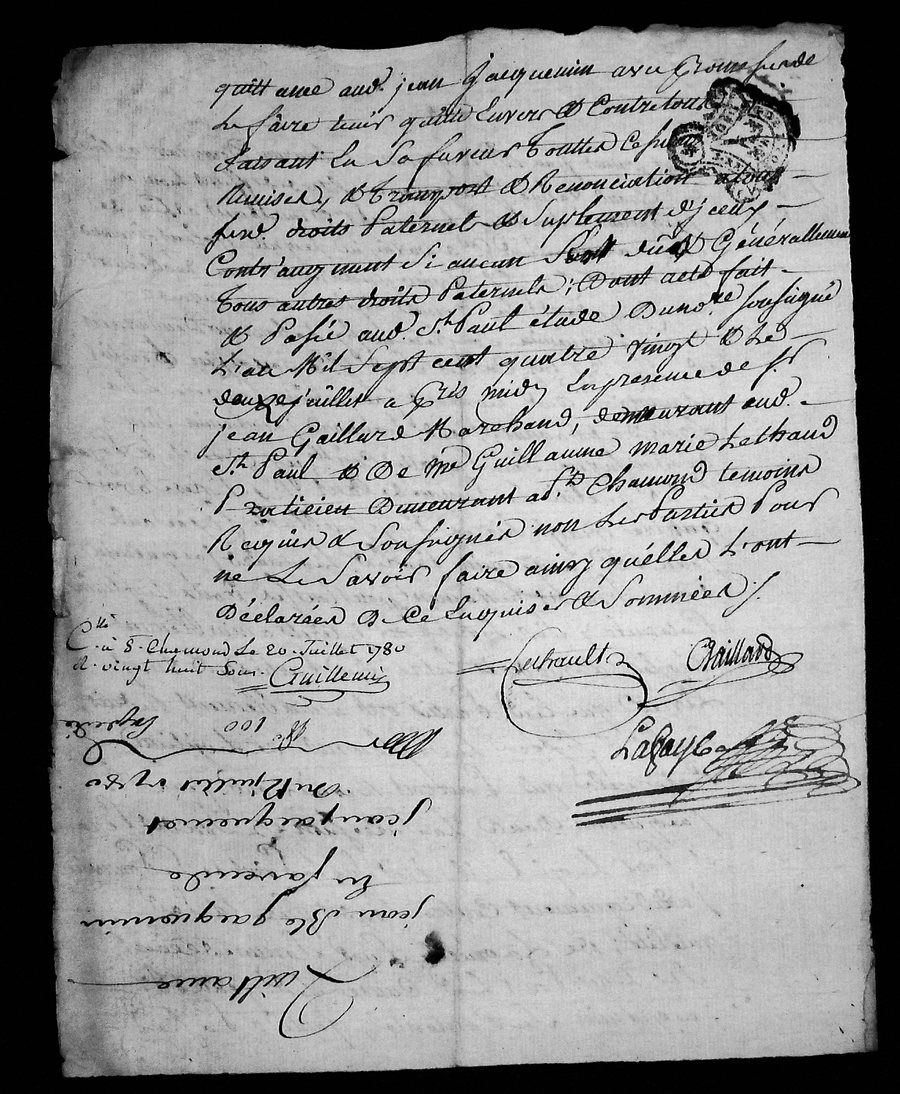 quittance aud. jean Jacquemin avec Promesse de
Le faire tenir quitte Envers & Contre tous
faisant En Sa faveur Touttes
Remises, & Transport & Renonciation a tous
ses droits Paternels & Suplement d'jceux
Cont'augment Si aucun Sont dûs & Générallement
Tous autres droits Paternels; Dont acte fait
& Passé aud. St. Paul étude Du nore. soussigné
L'an Mil Sept cent quatre vingt & Le
douze juillet après midy En presence de sr.
jean Gaillard Marchand, demeurant aud.
St. Paul & De Me Guillaume Marie Lethaud
Praticien Demeurant a St. Chamond temoins
Requis & Soussignés non Les Parties Pour
ne Le Savoir faire ainsy quélles L'ont
Déclarées De Ce Enquises & Sommées /.
Ctllé à St. Chamond Le 20. Juillet 1780
vingt huit Sous. Guillemin
Lethault Gaillard
100
Du 12 juillet 1780
jean jacquemin
En faveur de
jean Bte jacquemin
Quittance